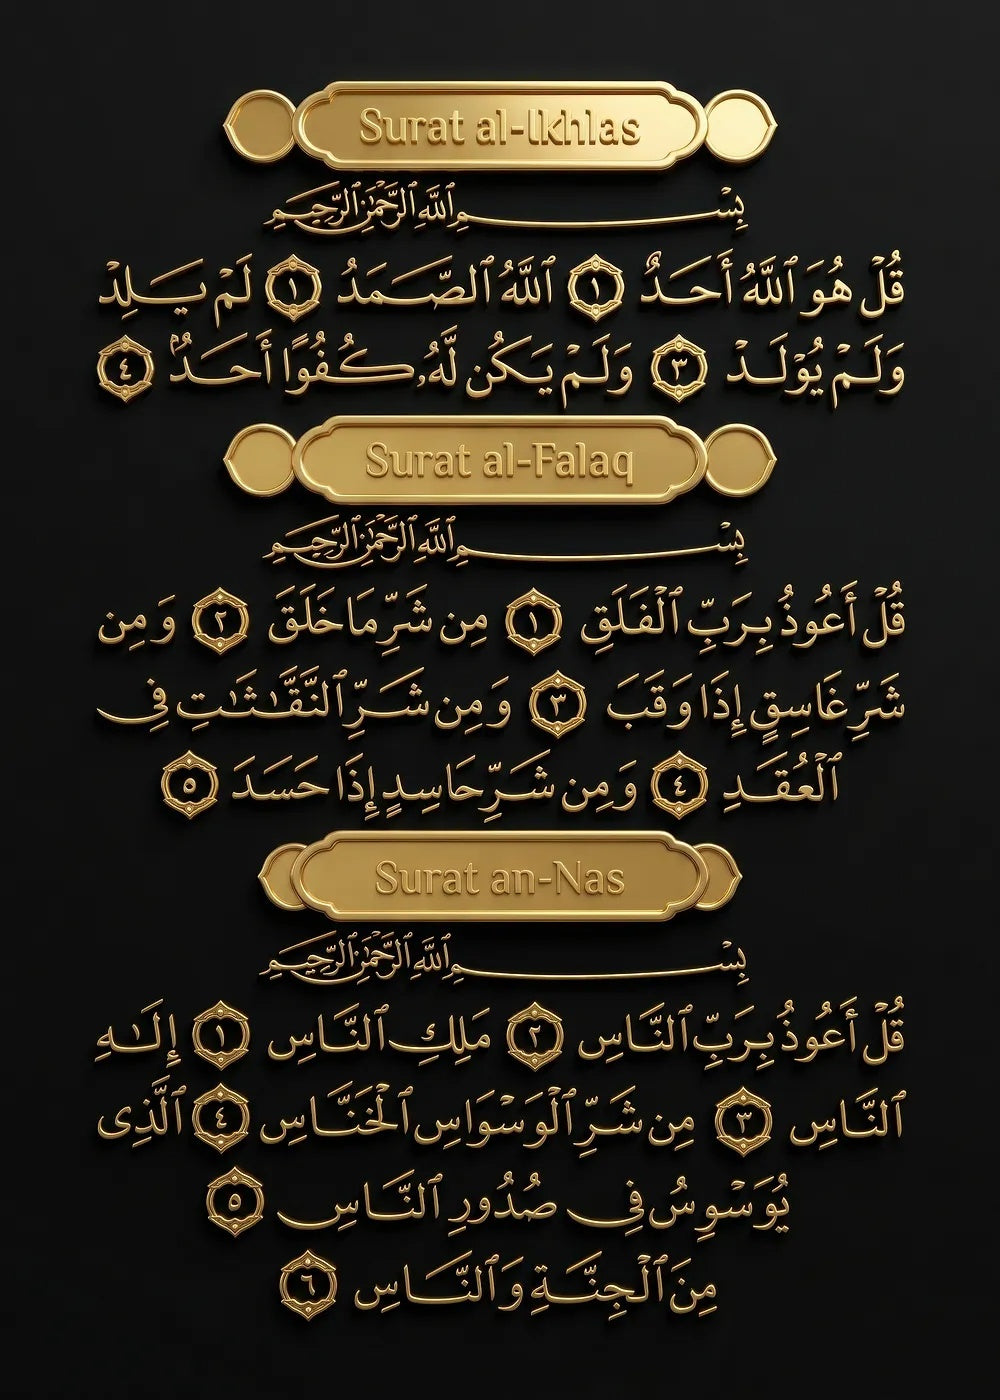 Surat al-Ikhlas
بِسْمِ ٱللَّهِ ٱلرَّحْمَٰنِ ٱلرَّحِيمِ
قُلْ هُوَ ٱللَّهُ أَحَدٌ ١ ٱللَّهُ ٱلصَّمَدُ ١ لَمْ يَلِدْ
وَلَمْ يُوْلَدْ ٣ وَلَمْ يَكُن لَّهُۥ كُفُوًا أَحَدٌۢ ٤
Surat al-Falaq
بِسْمِ ٱللَّهِ ٱلرَّحْمَٰنِ ٱلرَّحِيمِ
قُلْ أَعُوذُ بِرَبِّ ٱلْفَلَقِ ١ مِن شَرِّ مَا خَلَقَ ٢ وَمِن
شَرِّ غَاسِقٍ إِذَا وَقَبَ ٣ وَمِن شَرِّ ٱلنَّقَّٰثَٰتِ فِى
ٱلْعُقَدِ ٤ وَمِن شَرِّ حَاسِدٍ إِذَا حَسَدَ ٥
Surat an-Nas
بِسْمِ ٱللَّهِ ٱلرَّحْمَٰنِ ٱلرَّحِيمِ
قُلْ أَعُوذُ بِرَبِّ ٱلنَّاسِ ٢ مَلِكِ ٱلنَّاسِ ١ إِلَٰهِ
ٱلنَّاسِ ٣ مِن شَرِّ ٱلْوَسْوَاسِ ٱلْخَنَّاسِ ٤ ٱلَّذِى
يُوَسْوِسُ فِى صُدُورِ ٱلنَّاسِ ٥
مِنَ ٱلْجِنَّةِ وَٱلنَّاسِ ٦